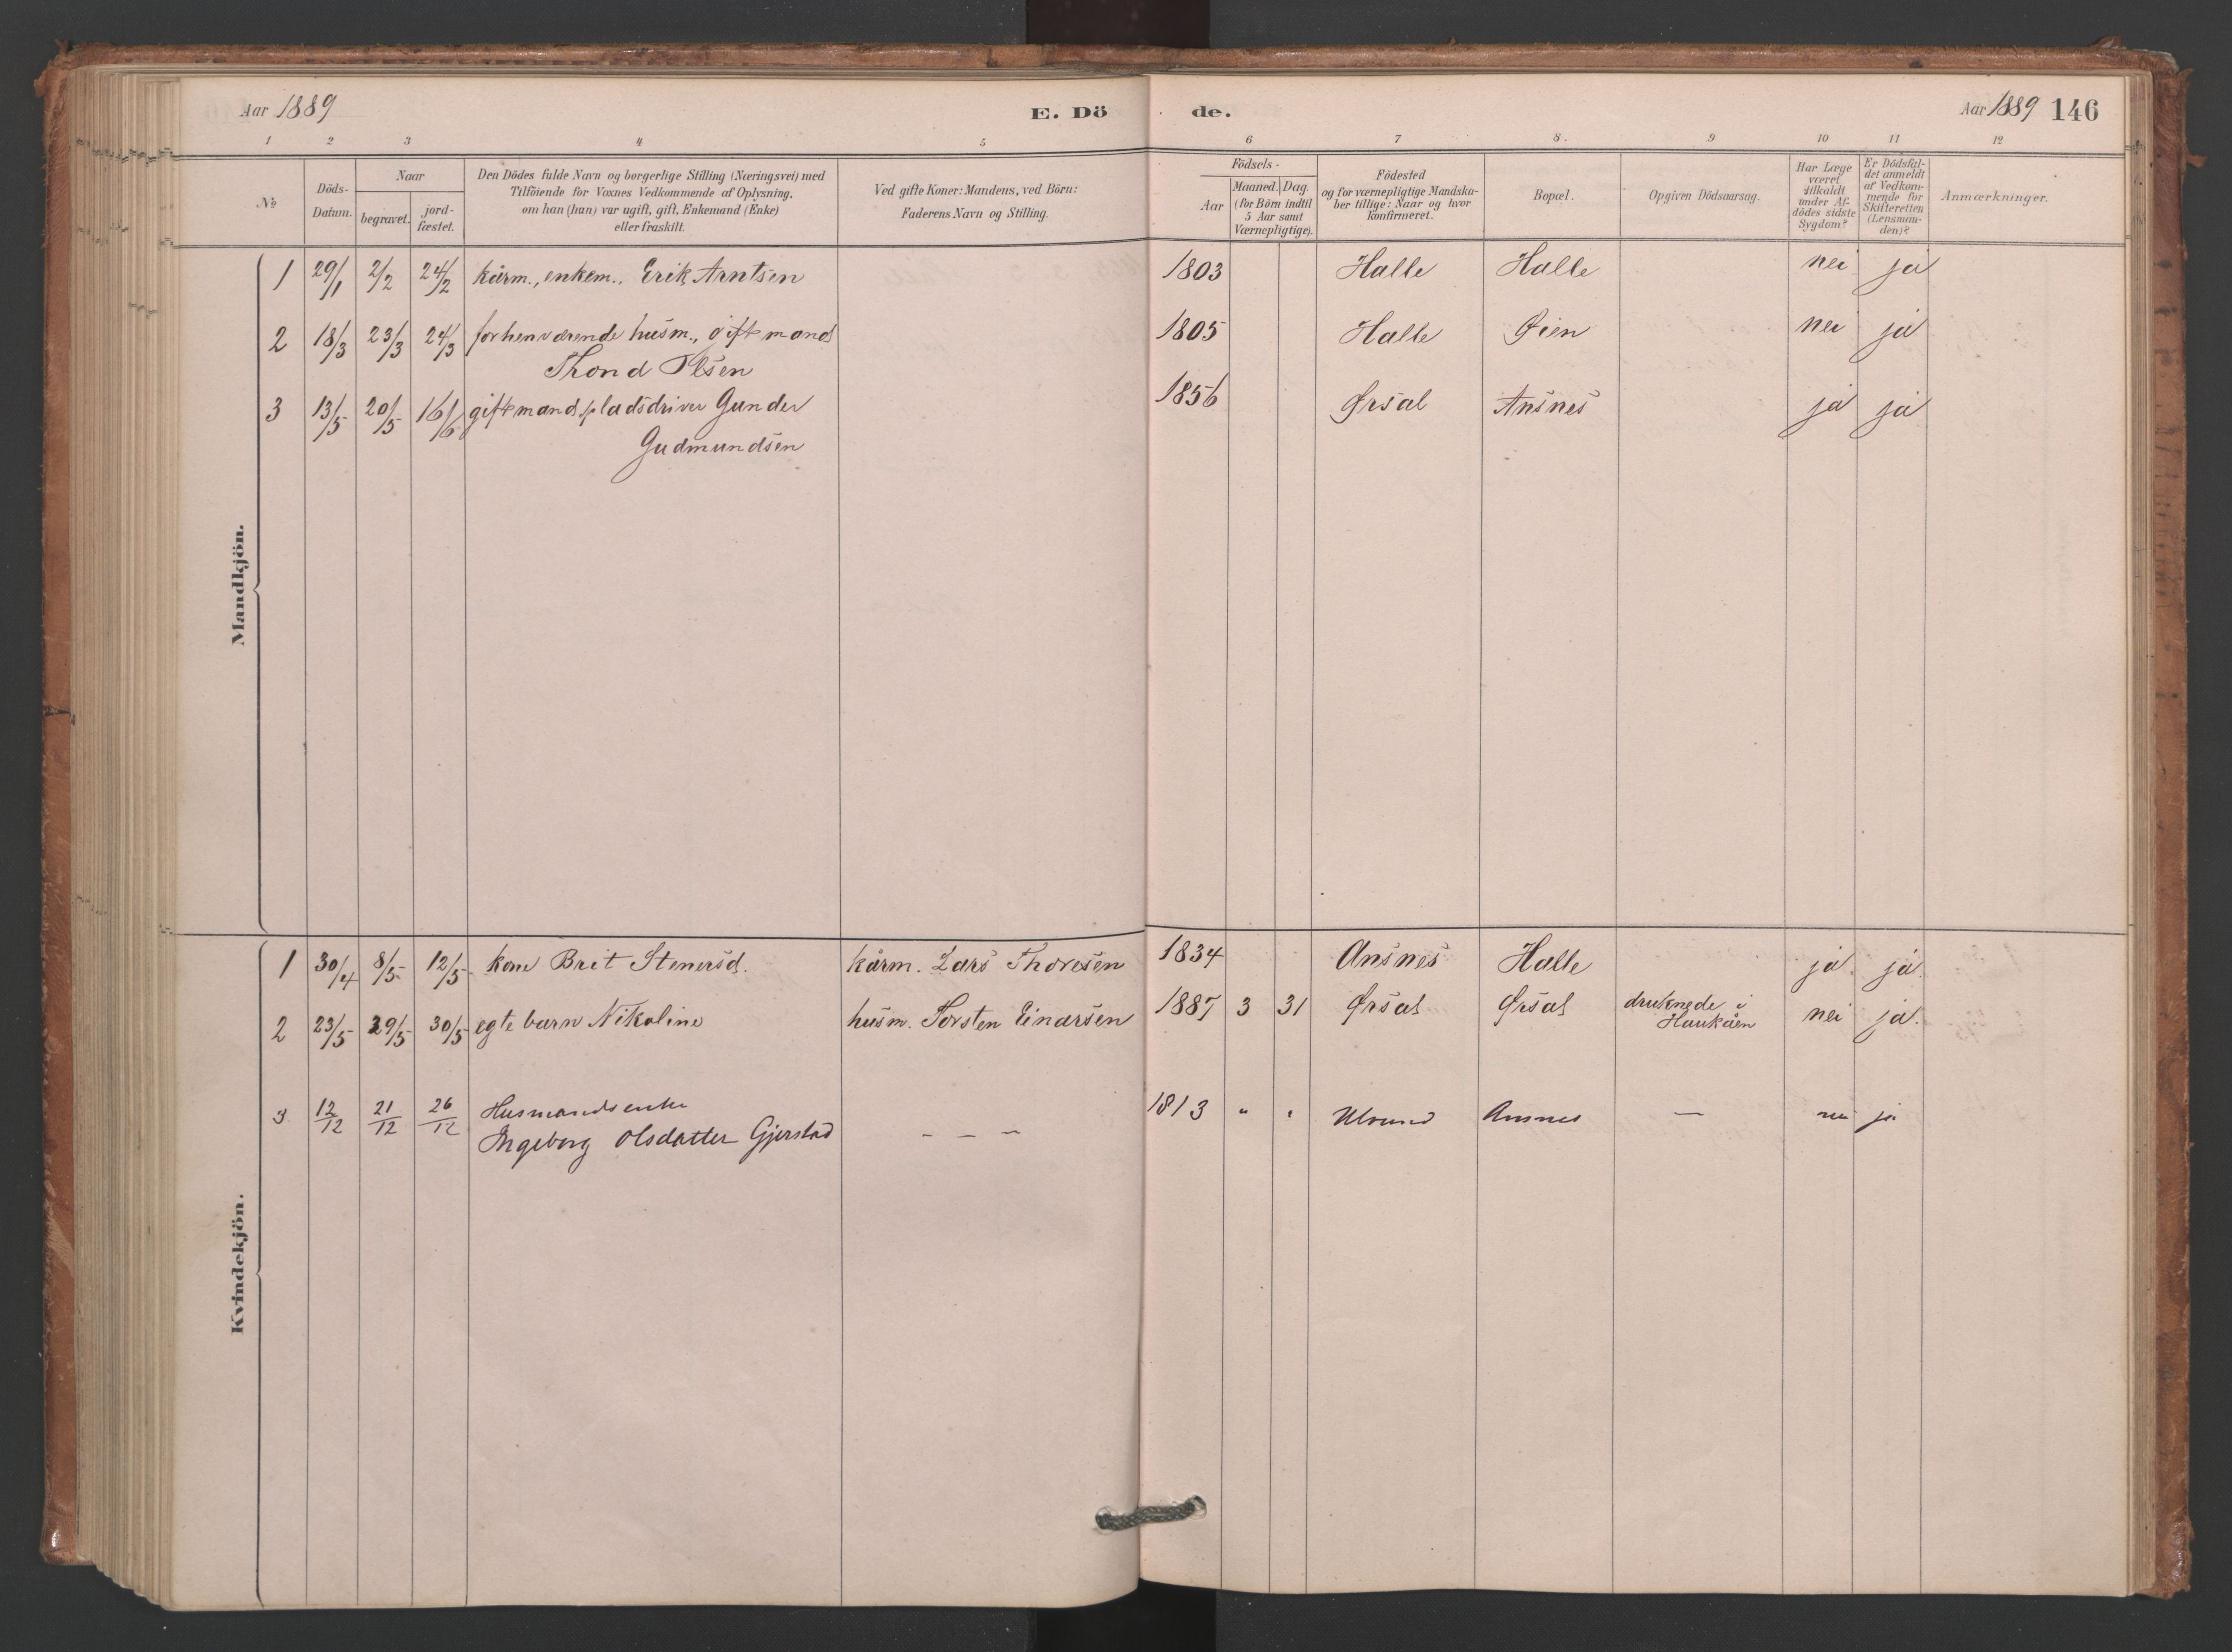 Aar 1889 E. Dö de. Aar 1889 146
1 2 3 4 5 6 7 8. 9 10 11 12
No
Döds-
Datum.
Naar
begravet.
jord-
fæstet.
Den Dödes fulde Navn og borgerlige Stilling (Næringsvei) med
Tilföiende for Voxnes Vedkommende af Oplysning,
om han (hun) var ugift, gift, Enkemand (Enke)
eller fraskilt.
Ved gifte Koner: Mandens, ved Börn:
Faderens Navn og Stilling.
Födsels-
Aar
Maaned. Dag.
(for Börn indtil
5 Aar samt
Værnepligtige).
Födested
og for værnepligtige Mandska-
ber tillige: Naar og hvor
konfirmeret.
Bopæl.
Opgiven Dödsaarsag.
Har Læge
været
tilkaldt
under Af-
dödes sidste
Sygdom?
Er Dödsfal-
det anmeldt
af Vedkom-
mende for
Skifteretten
(Lensman-
den)?
Anmærkninger.
Mandkjön.
1 29/1 2/2 24/2 kårm., enkem., Erik Arntsen 1803 Halle Halle nei ja
2 18/3 23/3 24/3 forhenværende husm., gift mand 1805 Halle Øien nei ja
Thond Olsen
3 13/5 20/5 16/6 gift mand pladsdriver Gunder 1856 Ørsal Ansnes ja ja
Gudmundsen
Kvindekjön.
1 30/4 8/5 12/5 kone Brit Stenersd. kårm. Lars Thoresen 1834 Ansnes Halle ja ja
2 23/5 29/5 30/5 egte barn Nikoline husm. Torsten Einarsen 1887 3 31 Ørsal Ørsal druknede i nei ja.
Haukåen
3 12/12 21/12 26/12 Husmandsenke 1813 " " Ulvund Ansnes — nei ja
Ingeborg Olsdatter Gjerstad – – –